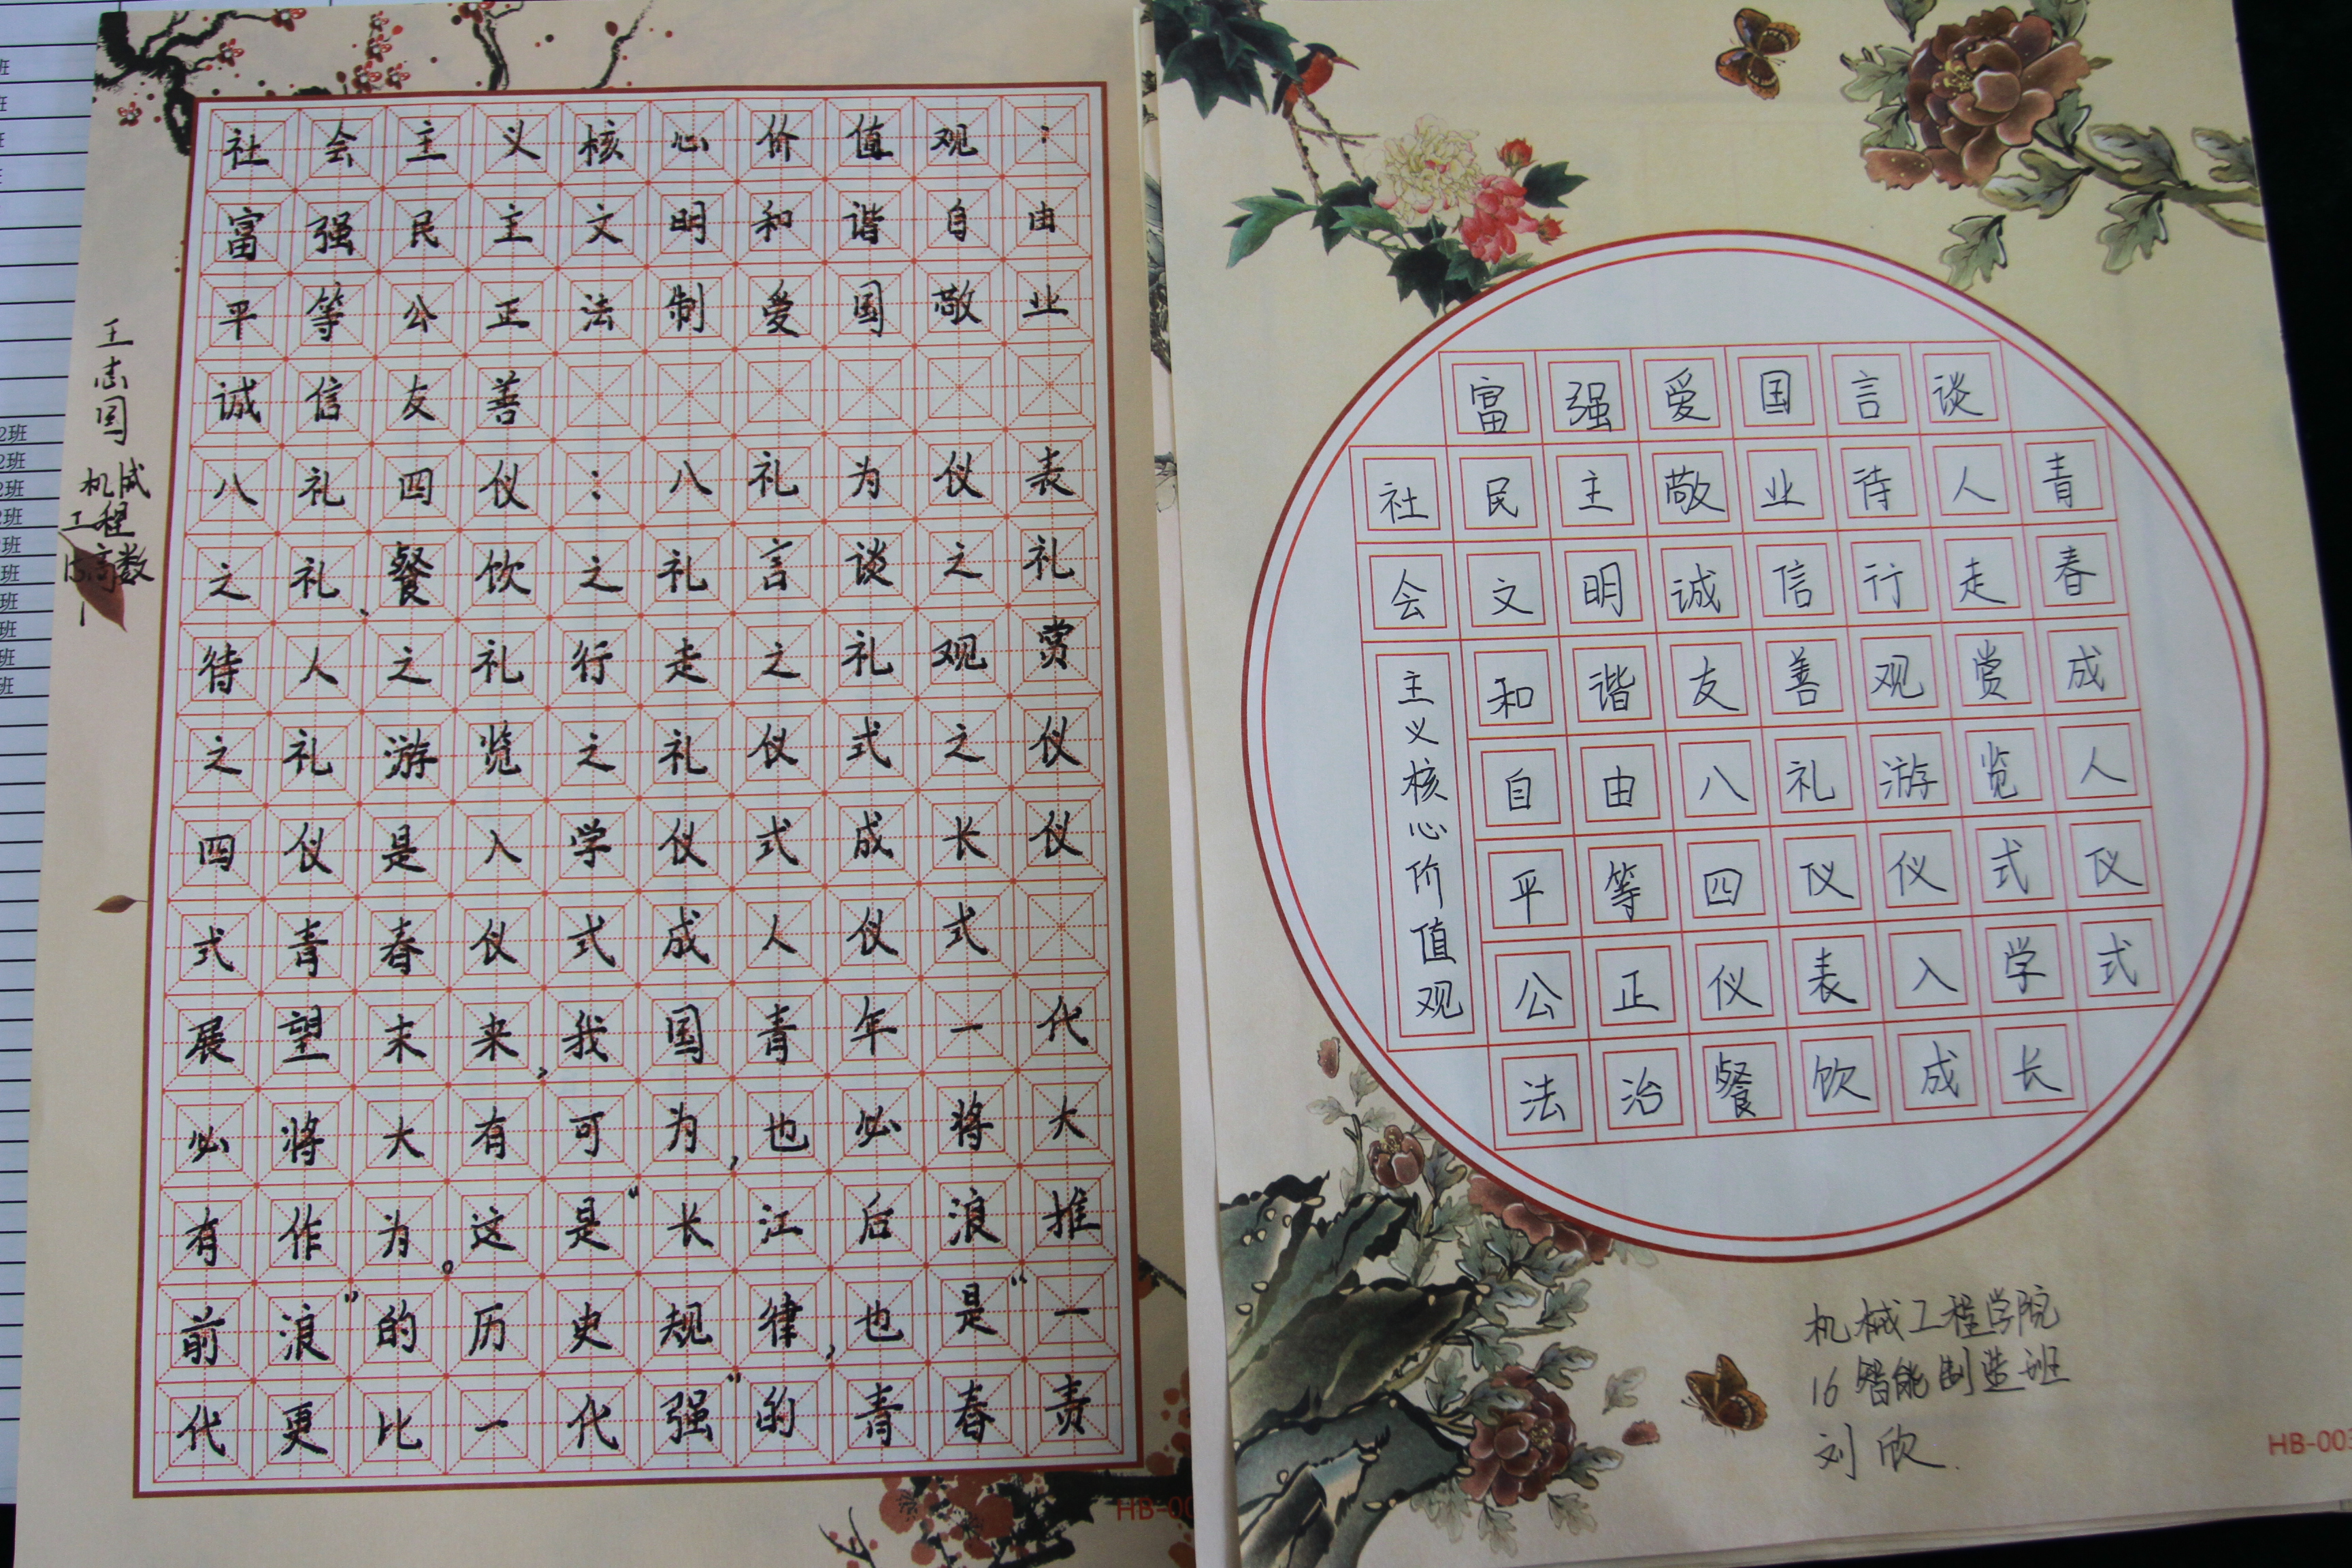 社会主义核心价值观：
富强民主文明和谐自由
平等公正法制爱国敬业
诚信友善
八礼四仪：八礼为仪表
之礼、餐饮之礼言谈之礼
待人之礼行走之礼观赏
之礼游览之礼仪式之仪
四仪是入学仪式成长仪
式青春仪式成人仪式
展望末来，我国青年一代
必将大有可为，也必将大
有作为。这是“长江后浪推
前浪”的历史规律，也是“一
代更比一代强”的青春责
王志国
机械
工程
15高数
1
富强爱国言谈
社民主敬业待人青
会文明诚信行走春
和谐友善观赏成
自由八礼游览人
平等四仪仪式仪
公正仪表入学式
法治餐饮成长
主义核心价值观
机械工程学院
16智能制造班
刘欣.
HB-00
HB-003
2班
2班
2班
2班
2班
2班
2班
班
班
班